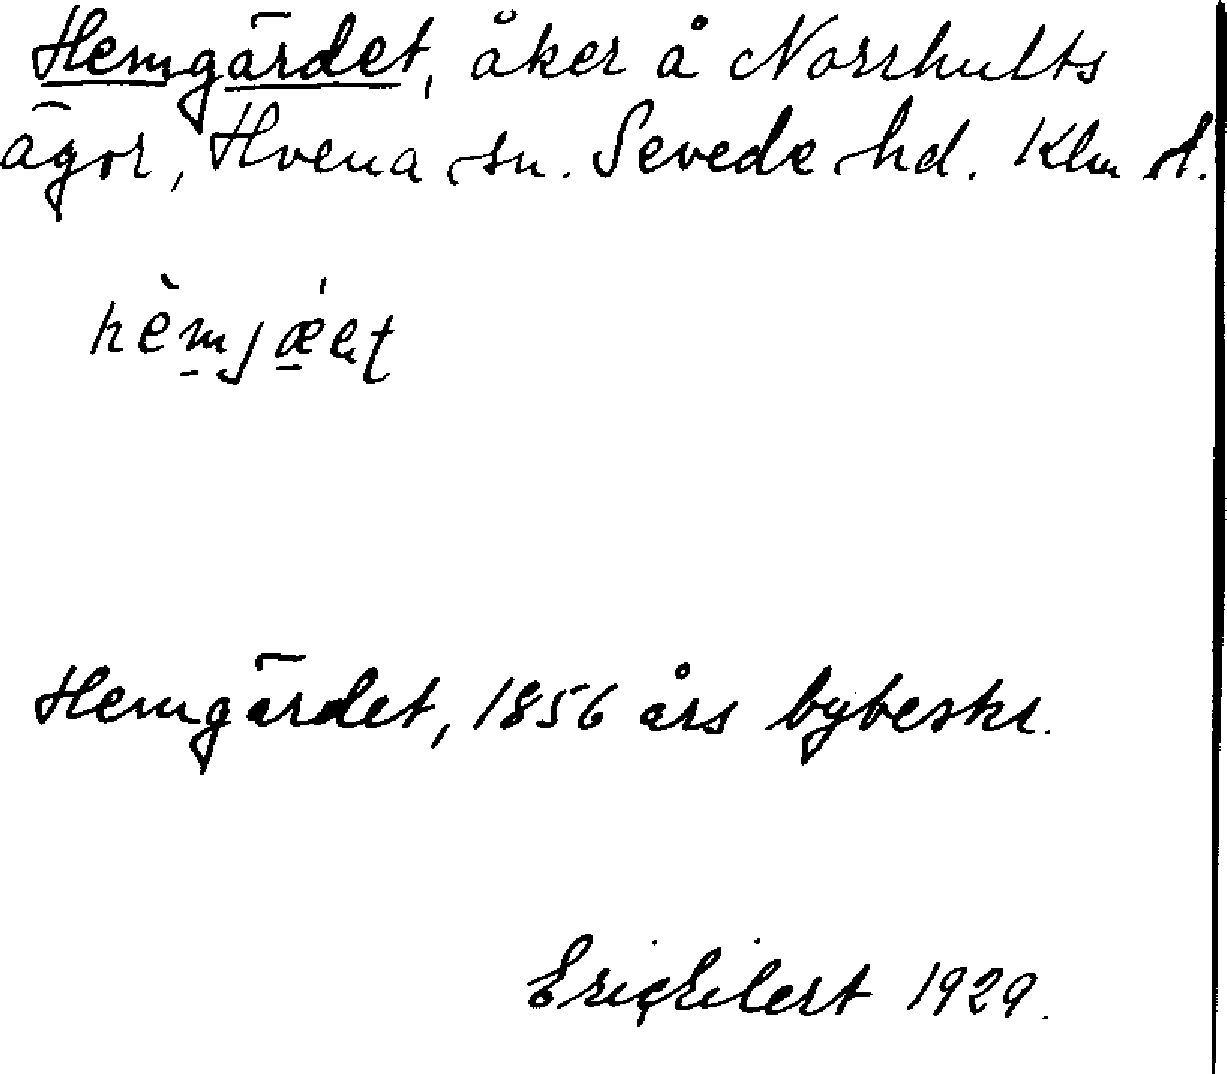 Hemgärdet, åker å Norrhults
ägor, Hvena sn. Sevede hd. Klm l.
hèmjæ̀et
Hemgärdet, 1856 års bybeskr.
Eric Eilert 1929.